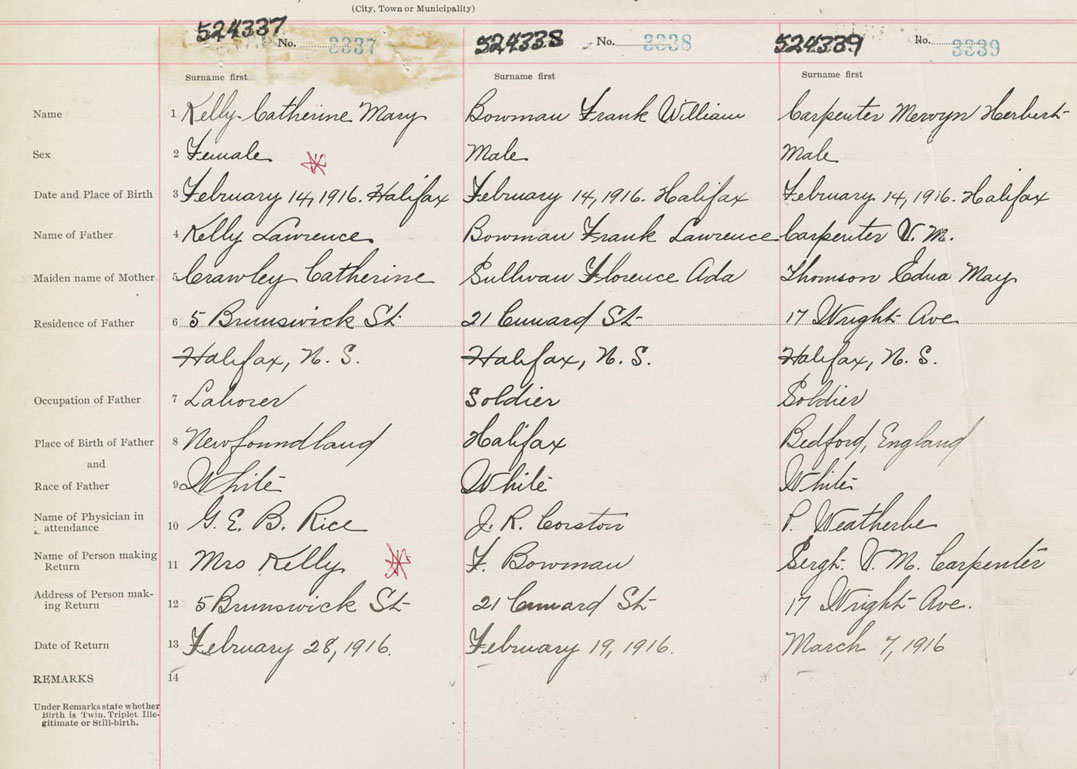 (City, Town or Municipality)
524337 524338 524339
No. 3337 No. 3338 No. 3339
Surname first Surname first Surname first
Name 1 Kelly Catherine Mary Bowman Frank William Carpenter Mervyn Herbert
Sex 2 Female Male Male
Date and Place of Birth 3 February 14, 1916. Halifax February 14, 1916. Halifax February 14, 1916. Halifax
Name of Father 4 Kelly Lawrence Bowman Frank Lawrence Carpenter V. M.
Maiden name of Mother 5 Crawley Catherine Sullivan Florence Ada Thomson Edna May
Residence of Father 6 5 Brunswick St 21 Cunard St 17 Wright Ave
Halifax, N. S. Halifax, N. S. Halifax, N. S.
Occupation of Father 7 Laborer Soldier Soldier
Place of Birth of Father 8 Newfoundland Halifax Bedford, England
and
Race of Father 9 White White White
Name of Physician in attendance 10 G. E. B. Rice J. R. Corston P. Weatherbe
Name of Person making Return 11 Mrs Kelly F. Bowman Sergt. V. M. Carpenter
Address of Person mak-ing Return 12 5 Brunswick St 21 Cunard St 17 Wright Ave.
Date of Return 13 February 28, 1916. February 19, 1916. March 7, 1916
REMARKS 14
Under Remarks state whether
Birth is Twin, Triplet Ille-
gitimate or Still-birth.